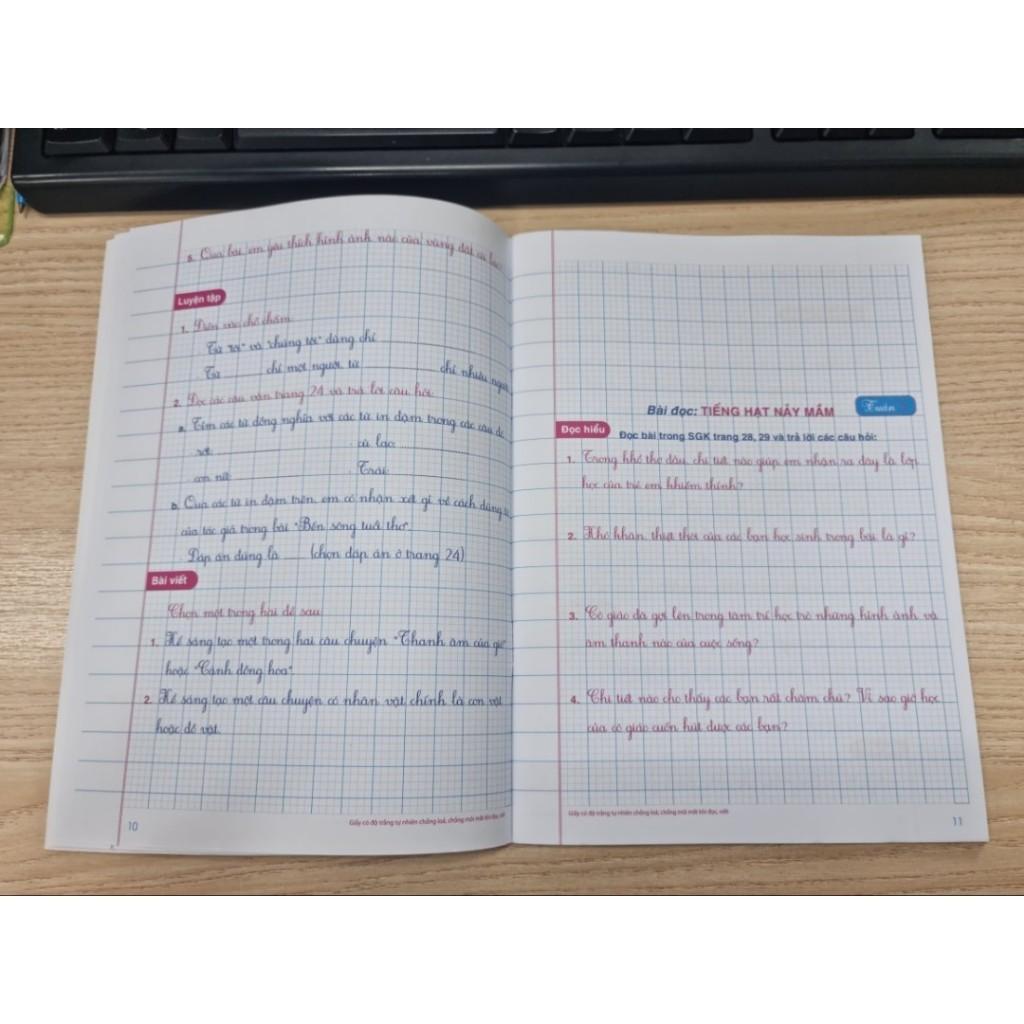 5. Qua bài, em yêu thích hình ảnh nào của vùng đất cù lao?
Luyện tập
1. Điền vào chỗ chấm.
Từ "tôi" và "chúng tôi" dùng chỉ
Từ ...... chỉ một người, từ ...... chỉ nhiều người
2. Đọc các câu văn trang 24 và trả lời câu hỏi.
a. Tìm các từ đồng nghĩa với các từ in đậm trong các câu đó.
rớt: ...... cù lao: ......
con nít: ...... Trái: ......
b. Qua các từ in đậm trên, em có nhận xét gì về cách dùng từ
của tác giả trong bài "Bến sông tuổi thơ".
Đáp án đúng là ...... (chọn đáp án ở trang 24)
Bài viết
Chọn một trong hai đề sau:
1. Kể sáng tạo một trong hai câu chuyện "Thanh âm của gió"
hoặc "Cánh đồng hoa".
2. Kể sáng tạo một câu chuyện có nhân vật chính là con vật
hoặc đồ vật.
10
Giấy có độ trắng tự nhiên chống loá, chống mỏi mắt khi đọc, viết
Bài đọc: TIẾNG HẠT NẢY MẦM
Tuần
Đọc hiểu
Đọc bài trong SGK trang 28, 29 và trả lời các câu hỏi:
1. Trong khổ thơ đầu, chi tiết nào giúp em nhận ra đây là lớp
học của trẻ em khiếm thính?
2. Khó khăn, thiệt thòi của các bạn học sinh trong bài là gì?
3. Cô giáo đã gợi lên trong tâm trí học trò những hình ảnh và
âm thanh nào của cuộc sống?
4. Chi tiết nào cho thấy các bạn rất chăm chú? Vì sao giờ học
của cô giáo cuốn hút được các bạn?
Giấy có độ trắng tự nhiên chống loá, chống mỏi mắt khi đọc, viết
11